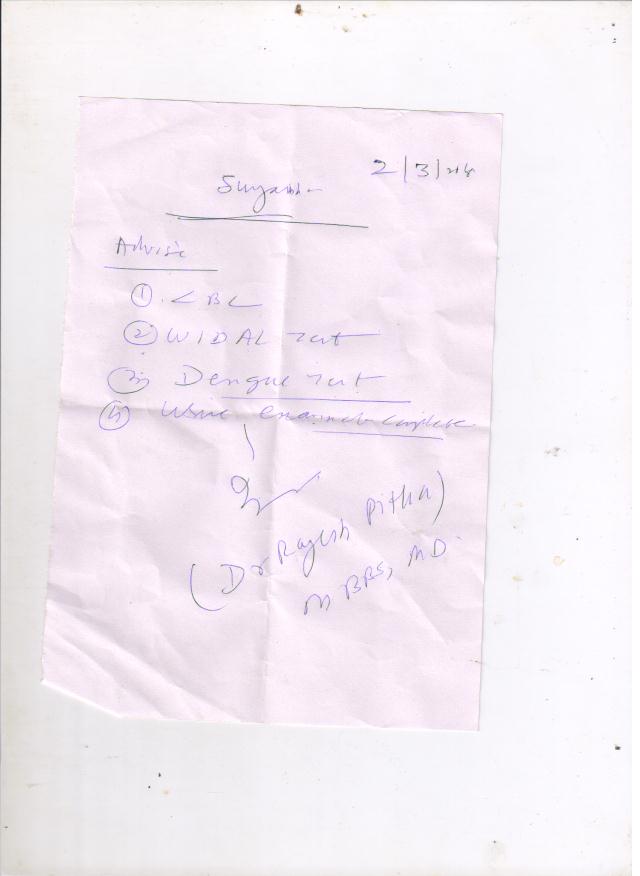 2/3/
Advise
① CBC
② WIDAL Test
③ Dengue Test
④ Urine complete
(Dr Rajesh
MBBS, MD.